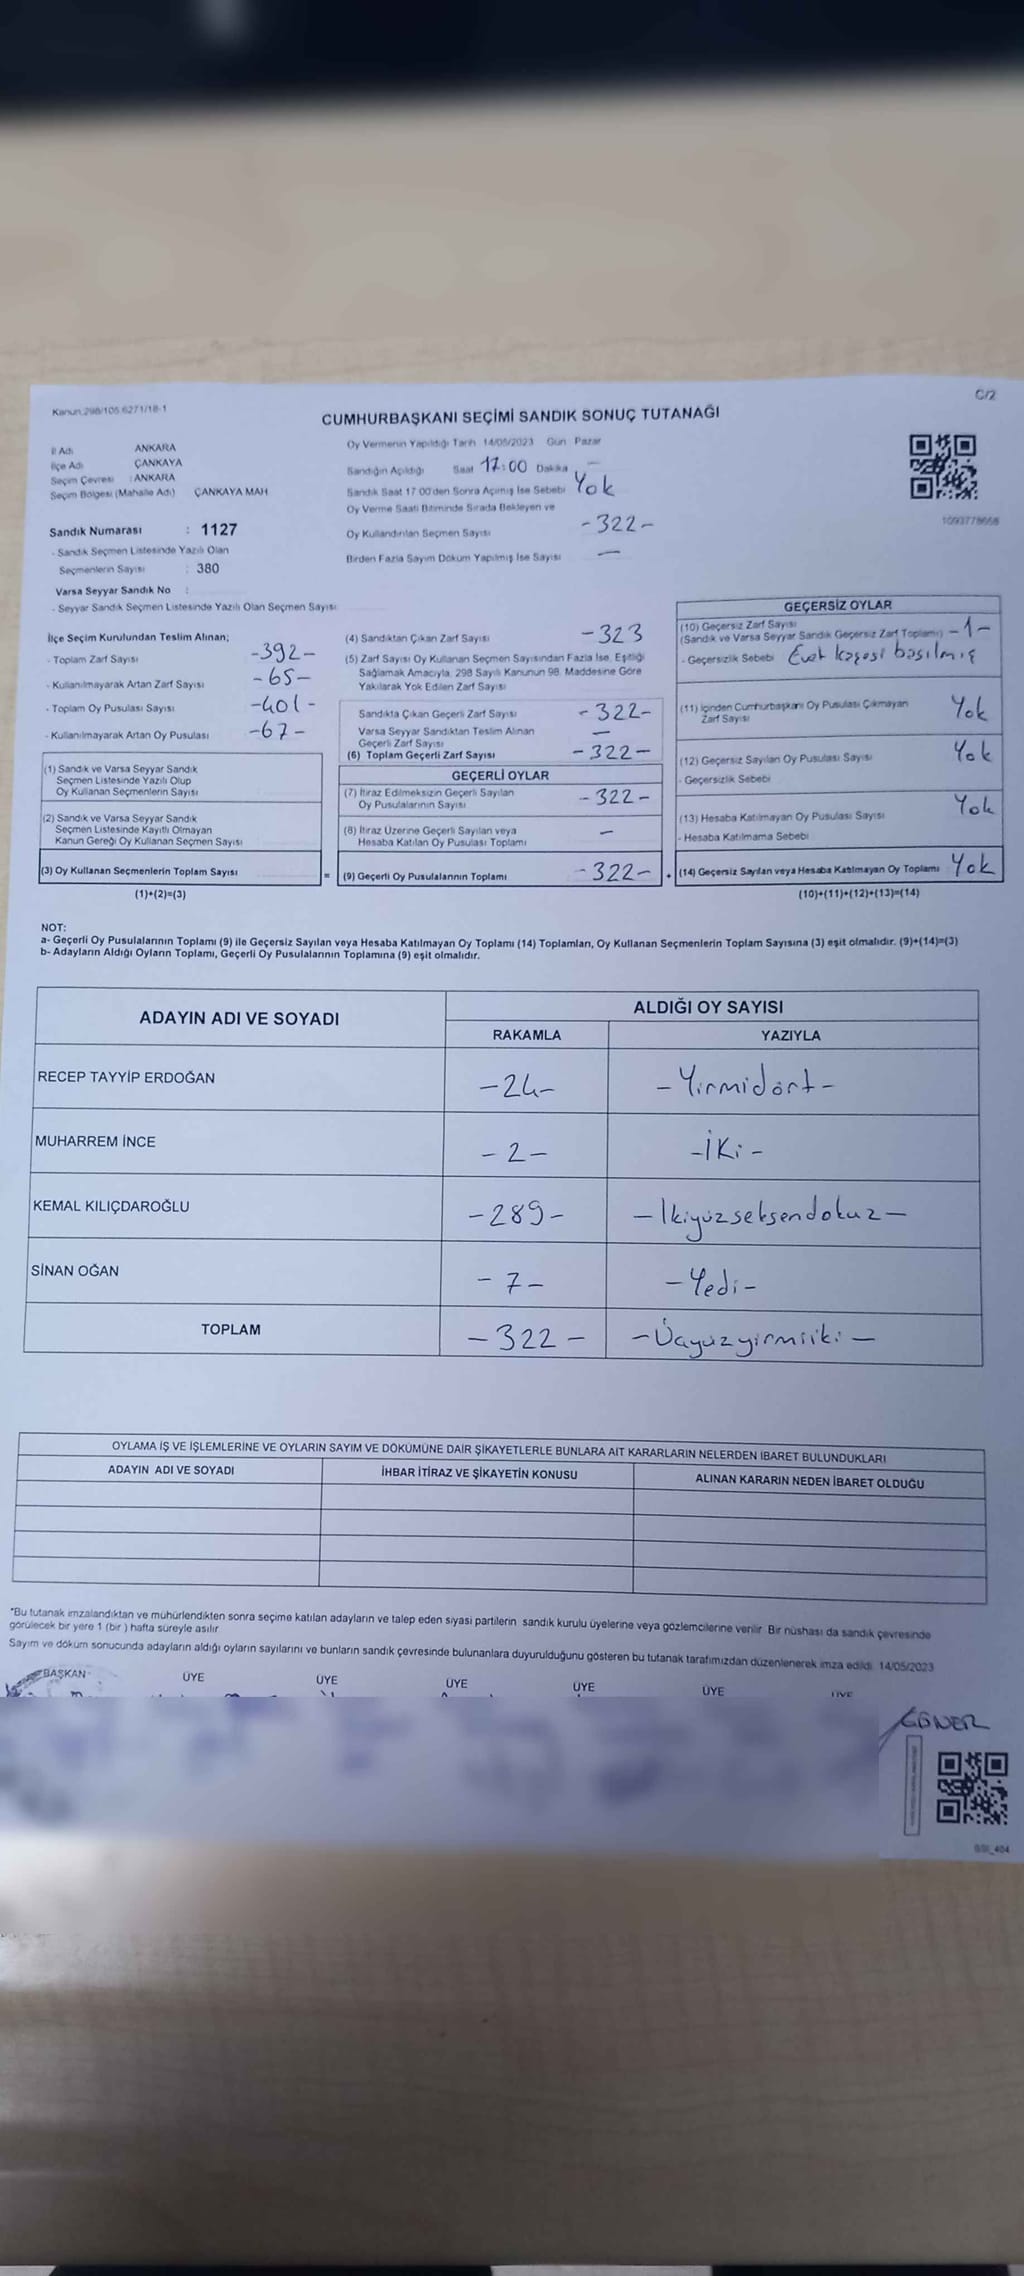 Kanun.298/105.6271/18-1
C/2
CUMHURBAŞKANI SEÇİMİ SANDIK SONUÇ TUTANAĞI
İl Adı ANKARA
İlçe Adı ÇANKAYA
Seçim Çevresi : ANKARA
Seçim Bölgesi (Mahalle Adı) ÇANKAYA MAH
Sandık Numarası : 1127
- Sandık Seçmen Listesinde Yazılı Olan
Seçmenlerin Sayısı : 380
Varsa Seyyar Sandık No :
- Seyyar Sandık Seçmen Listesinde Yazılı Olan Seçmen Sayısı
Oy Vermenin Yapıldığı Tarih 14/05/2023 Gün Pazar
Sandığın Açıldığı Saat 17:00 Dakika —
Sandık Saat 17 00'den Sonra Açımış İse Sebebi Yok
Oy Verme Saati Bitiminde Sırada Bekleyen ve
Oy Kullandırılan Seçmen Sayısı -322-
Birden Fazla Sayım Döküm Yapılmış İse Sayısı —
1093778658
İlçe Seçim Kurulundan Teslim Alınan;
- Toplam Zarf Sayısı -392-
- Kullanılmayarak Artan Zarf Sayısı -65-
- Toplam Oy Pusulası Sayısı -401-
- Kullanılmayarak Artan Oy Pusulası -67-
(1) Sandık ve Varsa Seyyar Sandık
Seçmen Listesinde Yazılı Olup
Oy Kullanan Seçmenlerin Sayısı
(2) Sandık ve Varsa Seyyar Sandık
Seçmen Listesinde Kayıtlı Olmayan
Kanun Gereği Oy Kullanan Seçmen Sayısı
(3) Oy Kullanan Seçmenlerin Toplam Sayısı =
(1)+(2)=(3)
(4) Sandıktan Çıkan Zarf Sayısı -323
(5) Zarf Sayısı Oy Kullanan Seçmen Sayısından Fazla İse, Eşitliği
Sağlamak Amacıyla, 298 Sayılı Kanunun 98. Maddesine Göre
Yakılarak Yok Edilen Zarf Sayısı
Sandıkta Çıkan Geçerli Zarf Sayısı -322-
Varsa Seyyar Sandıktan Teslim Alınan
Geçerli Zarf Sayısı —
(6) Toplam Geçerli Zarf Sayısı -322-
GEÇERLİ OYLAR
(7) İtiraz Edilmeksizin Geçerli Sayılan
Oy Pusulalarının Sayısı -322-
(8) İtiraz Üzerine Geçerli Sayılan veya
Hesaba Katılan Oy Pusulası Toplamı —
(9) Geçerli Oy Pusulalarının Toplamı -322- +
GEÇERSİZ OYLAR
(10) Geçersiz Zarf Sayısı
(Sandık ve Varsa Seyyar Sandık Geçersiz Zarf Toplamı) -1-
- Geçersizlik Sebebi Evet kaşesi basılmış
(11) İçinden Cumhurbaşkanı Oy Pusulası Çıkmayan
Zarf Sayısı Yok
(12) Geçersiz Sayılan Oy Pusulası Sayısı Yok
- Geçersizlik Sebebi
(13) Hesaba Katılmayan Oy Pusulası Sayısı Yok
- Hesaba Katılmama Sebebi
(14) Geçersiz Sayılan veya Hesaba Katılmayan Oy Toplamı Yok
(10)+(11)+(12)+(13)=(14)
NOT:
a- Geçerli Oy Pusulalarının Toplamı (9) ile Geçersiz Sayılan veya Hesaba Katılmayan Oy Toplamı (14) Toplamları, Oy Kullanan Seçmenlerin Toplam Sayısına (3) eşit olmalıdır. (9)+(14)=(3)
b- Adayların Aldığı Oyların Toplamı, Geçerli Oy Pusulalarının Toplamına (9) eşit olmalıdır.
ADAYIN ADI VE SOYADI
ALDIĞI OY SAYISI
RAKAMLA YAZIYLA
RECEP TAYYİP ERDOĞAN -24- -Yirmidört-
MUHARREM İNCE -2- -İki-
KEMAL KILIÇDAROĞLU -289- -İkiyüzseksendokuz-
SİNAN OĞAN -7- -Yedi-
TOPLAM -322- -Üçyüzyirmiiki-
OYLAMA İŞ VE İŞLEMLERİNE VE OYLARIN SAYIM VE DÖKÜMÜNE DAİR ŞİKAYETLERLE BUNLARA AİT KARARLARIN NELERDEN İBARET BULUNDUKLARI
ADAYIN ADI VE SOYADI İHBAR İTİRAZ VE ŞİKAYETİN KONUSU ALINAN KARARIN NEDEN İBARET OLDUĞU
"Bu tutanak imzalandıktan ve mühürlendikten sonra seçime katılan adayların ve talep eden siyasi partilerin sandık kurulu üyelerine veya gözlemcilerine verilir. Bir nüshası da sandık çevresinde
görülecek bir yere 1 (bir ) hafta süreyle asılır
Sayım ve döküm sonucunda adayların aldığı oyların sayılarını ve bunların sandık çevresinde bulunanlara duyurulduğunu gösteren bu tutanak tarafımızdan düzenlenerek imza edildi. 14/05/2023
BAŞKAN ÜYE ÜYE ÜYE ÜYE ÜYE ÜYE